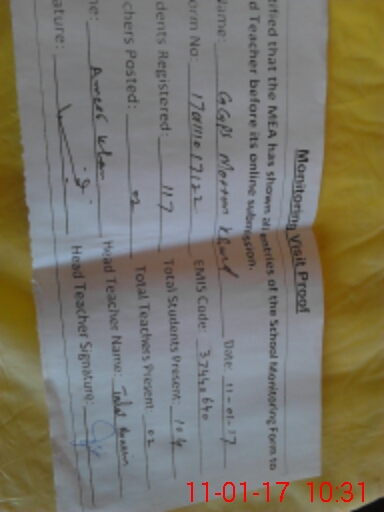 Monitoring Visit Proof
tified that the MEA has shown all entries of the School Monitoring Form to
d Teacher before its online submission.
Name: GGPS Date: 11-01-17
orm No: EMIS Code: 37440640
dents Registered: 117 Total Students Present: 104
chers Posted: 02 Total Teachers Present: 02
me: Khan Head Teacher Name:
ature: Head Teacher Signature:
11-01-17 10:31